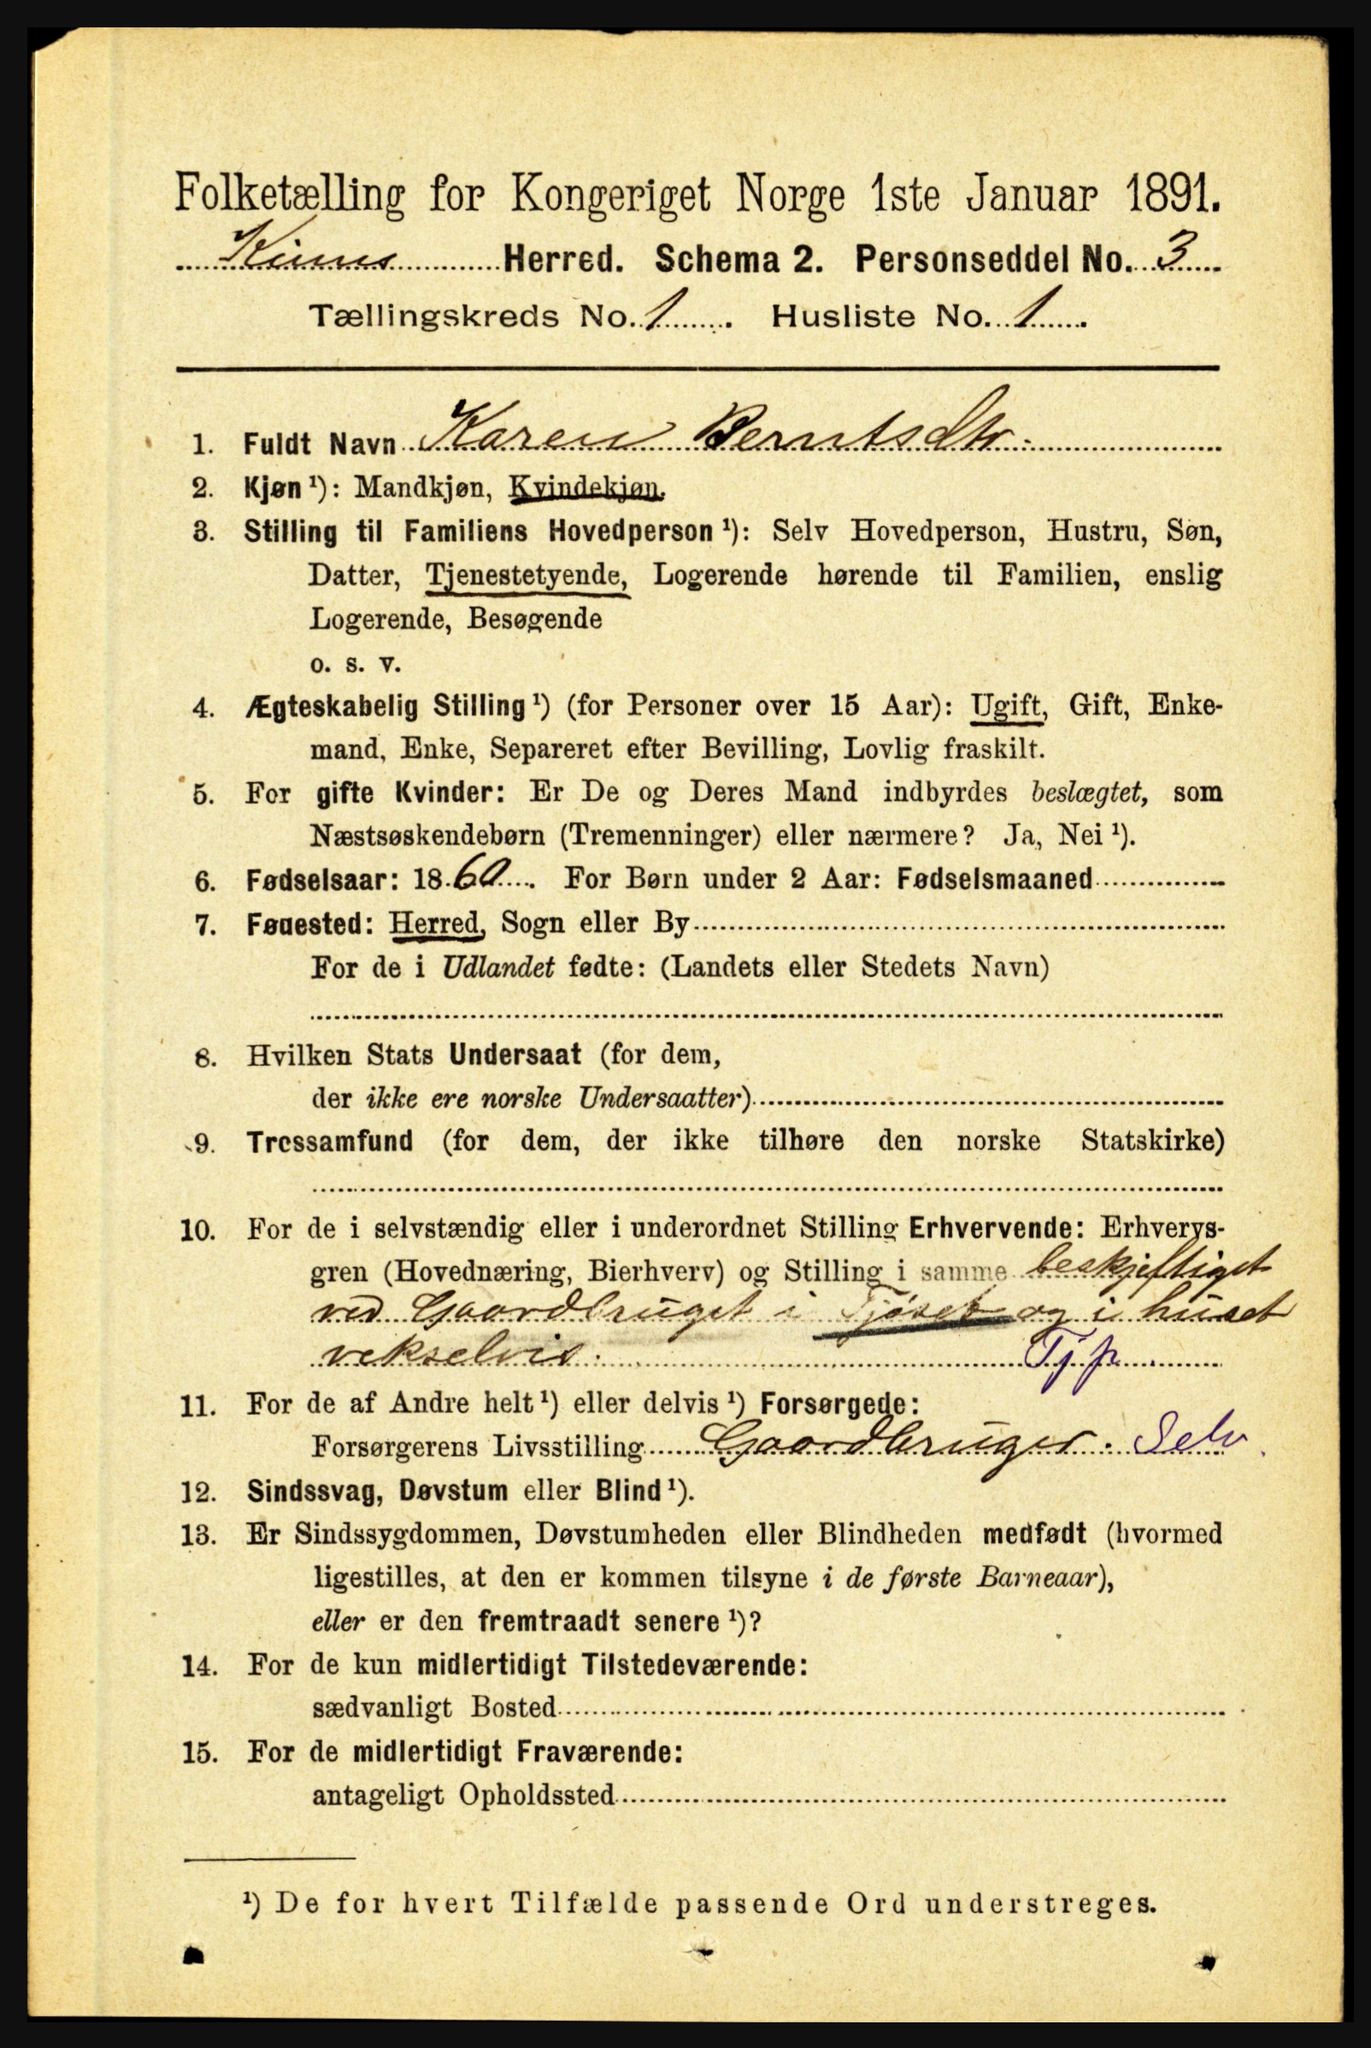 Folketælling for Kongeriget Norge 1ste Januar 1891.
Kinns Herred. Schema 2. Personseddel No. 3
Tællingskreds No. 1. Husliste No. 1.
1. Fuldt Navn Karen Berntsdtr.
2. Kjøn ¹): Mandkjøn, Kvindekjøn.
3. Stilling til Familiens Hovedperson ¹): Selv Hovedperson, Hustru, Søn,
Datter, Tjenestetyende, Logerende hørende til Familien, enslig
Logerende, Besøgende
o. s. v.
4. Ægteskabelig Stilling ¹) (for Personer over 15 Aar): Ugift, Gift, Enke-
mand, Enke, Separeret efter Bevilling, Lovlig fraskilt.
5. For gifte Kvinder: Er De og Deres Mand indbyrdes beslægtet, som
Næstsøskendebørn (Tremenninger) eller nærmere? Ja, Nei ¹).
6. Fødselsaar: 1860. For Børn under 2 Aar: Fødselsmaaned
7. Føuested: Herred, Sogn eller By
For de i Udlandet fødte: (Landets eller Stedets Navn)
8. Hvilken Stats Undersaat (for dem,
der ikke ere norske Undersaatter)
9. Trossamfund (for dem, der ikke tilhøre den norske Statskirke)
10. For de i selvstændig eller i underordnet Stilling Erhvervende: Erhvervs-
gren (Hovednæring, Bierhverv) og Stilling i samme beskjeftiget
ved Gaardbruget i Fjøset og i huset
vekselvis. Tjp.
11. For de af Andre helt ¹) eller delvis ¹) Forsørgede:
Forsørgerens Livsstilling Gaardbruger. Selv
12. Sindssvag, Døvstum eller Blind ¹).
13. Er Sindssygdommen, Døvstumheden eller Blindheden medfødt (hvormed
ligestilles, at den er kommen tilsyne i de første Barneaar),
eller er den fremtraadt senere ¹)?
14. For de kun midlertidigt Tilstedeværende:
sædvanligt Bosted
15. For de midlertidigt Fraværende:
antageligt Opholdssted
¹) De for hvert Tilfælde passende Ord understreges.